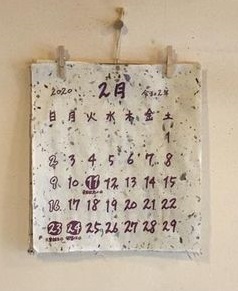 2020 2月 令和2年
日 月 火 水 木 金 土
1
2 3 4 5 6 7 8
9 10 11 12 13 14 15
16 17 18 19 20 21 22
23 24 25 26 27 28 29